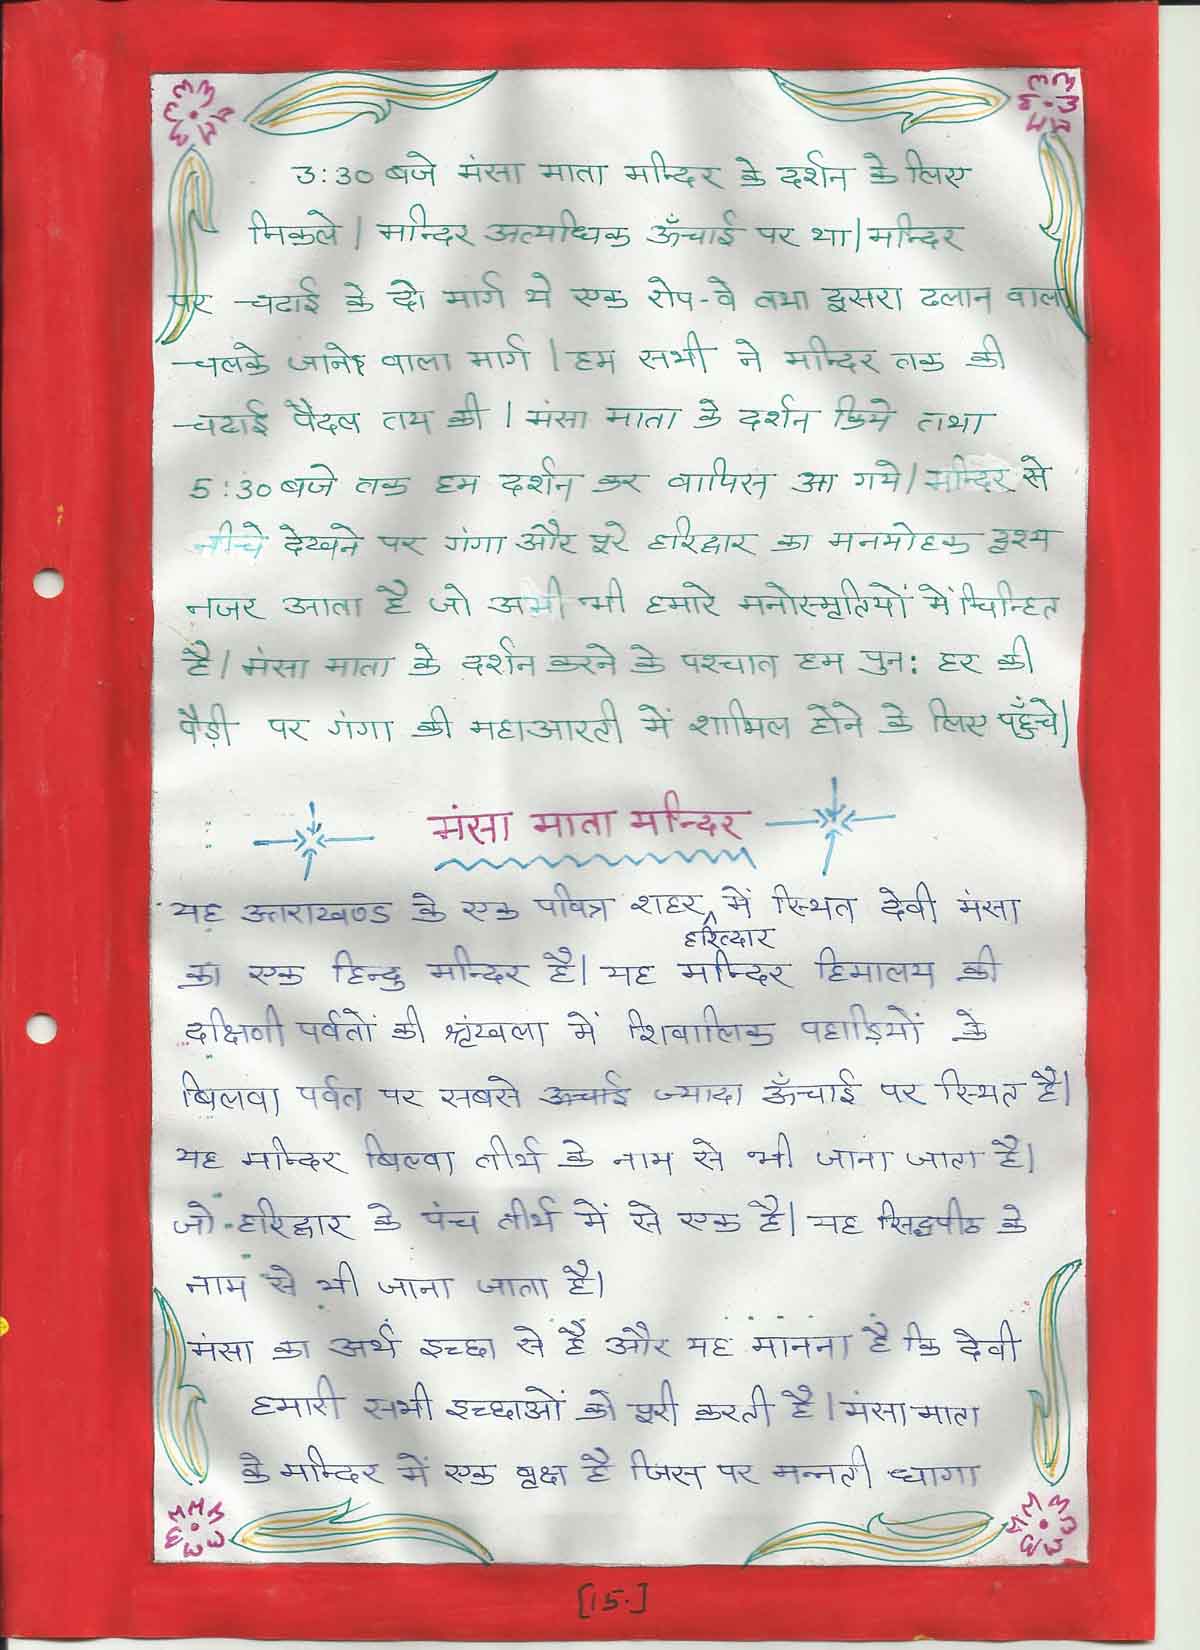 3:30 बजे मंसा माता मन्दिर के दर्शन के लिए
निकले। मन्दिर अत्यधिक ऊँचाई पर था। मन्दिर
पर चढाई के दो मार्ग थे एक रोप-वे तथा दुसरा ढलान वाला
चलके जाने वाला मार्ग। हम सभी ने मन्दिर तक की
चढाई पैदल तय की। मंसा माता के दर्शन किये तथा
5:30 बजे तक हम दर्शन कर वापिस आ गये। मन्दिर से
नीचे देखने पर गंगा और पूरे हरिद्वार का मनमोहक दृश्य
नजर आता है जो अभी भी हमारे मनोस्मृतियों में चिन्हित
है। मंसा माता के दर्शन करने के पश्चात हम पुन: हर की
पैड़ी पर गंगा की महाआरती में शामिल होने के लिए पहुँचे।
मंसा माता मन्दिर
यह उत्तराखण्ड के एक पवित्र शहर हरिव्दार में स्थित देवी मंसा
का एक हिन्दु मन्दिर है। यह मन्दिर हिमालय की
दक्षिणी पर्वतों की श्रृंखला में शिवालिक पहाड़ियों के
बिलवा पर्वत पर सबसे ऊचाई ज्यादा ऊँचाई पर स्थित है।
यह मन्दिर बिल्वा तीर्थ के नाम से भी जाना जाता है।
जो हरिद्वार के पंच तीर्थ में से एक है। यह सिद्धपीठ के
नाम से भी जाना जाता है।
मंसा का अर्थ इच्छा से हैं और यह मानना है कि देवी
हमारी सभी इच्छाओं को पूरी करती है। मंसा माता
के मन्दिर में एक वृक्ष है जिस पर मन्नती धागा
[15.]